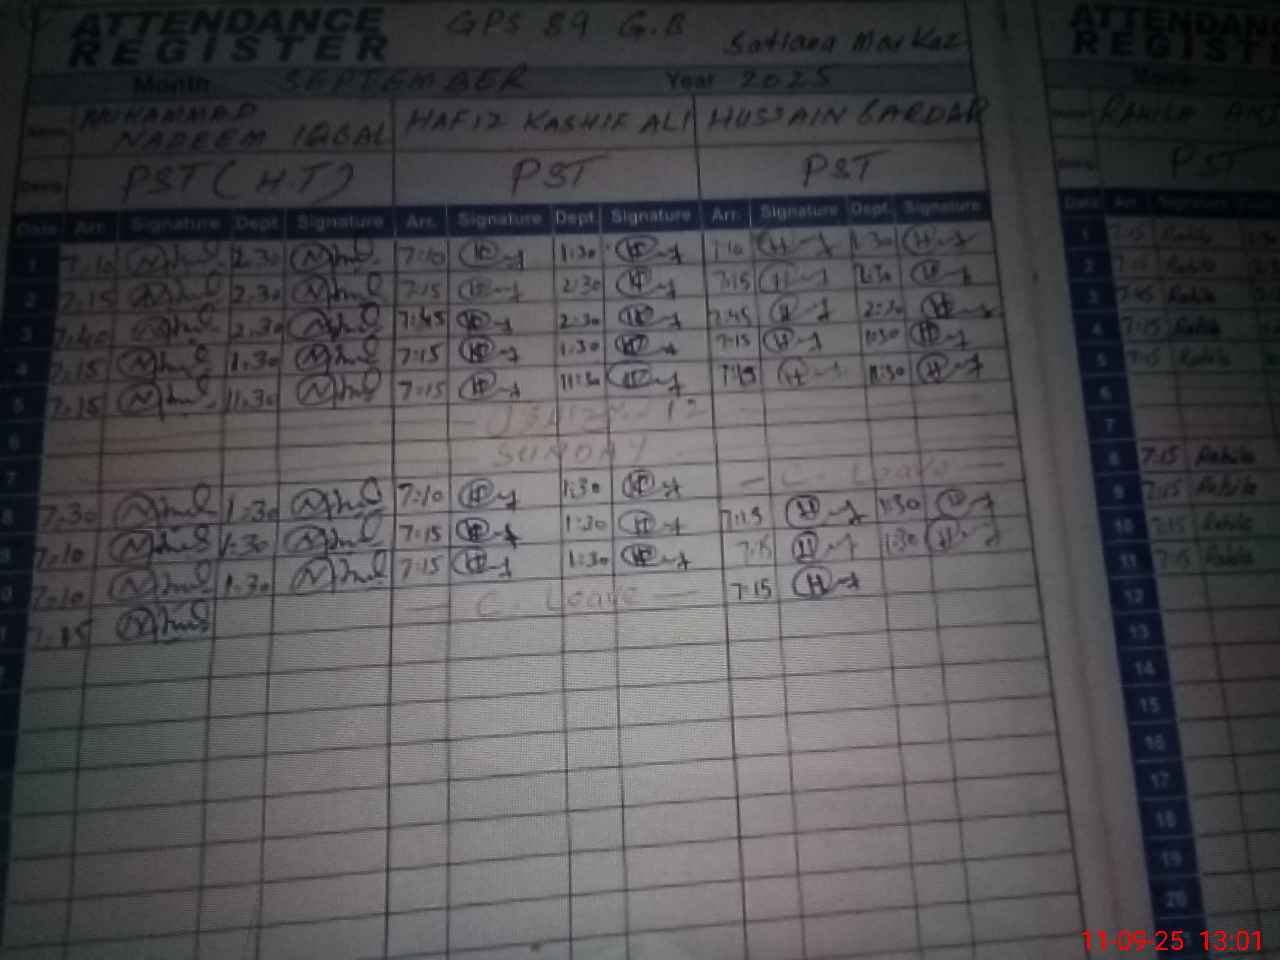 ATTENDANCE REGISTER GPS 89 G.B Satiana Markaz
Month SEPTEMBER Year 2025
Name MUHAMMAD NADEEM IQBAL HAFIZ KASHIF ALI HUSSAIN SARDAR
PST (H.T) PST PST
Date Arr. Signature Dept Signature Arr. Signature Dept. Signature Arr. Signature Dept. Signature
1 7:10 2:30 7:10 1:30 1:30
2 7:15 2:30 7:15 2:30 7:15 2:30
3 7:40 2:30 7:45 2:30 7:45 2:30
4 7:15 1:30 7:15 1:30 7:15 1:30
5 7:15 11:30 7:15 11:30 11:30
6
7 SUNDAY
8 7:30 1:30 7:10 1:30 C. Leave
9 7:10 1:30 7:15 1:30 7:15 1:30
10 7:10 1:30 7:15 1:30 7:15 1:30
11 7:15 C. Leave 7:15
ATTENDANCE REGISTER
Month
RAHILA
PST
Date Arr. Signature
1 7:15 Rahila
2 7:15 Rahila
3 7:45 Rahila
4 7:15 Rahila
5 7:15 Rahila
6
7
8 7:15 Rahila
9 7:15 Rahila
10 7:15 Rahila
11 7:15 Rahila
12
13
14
15
16
17
18
19
20
11-09-25 13:01